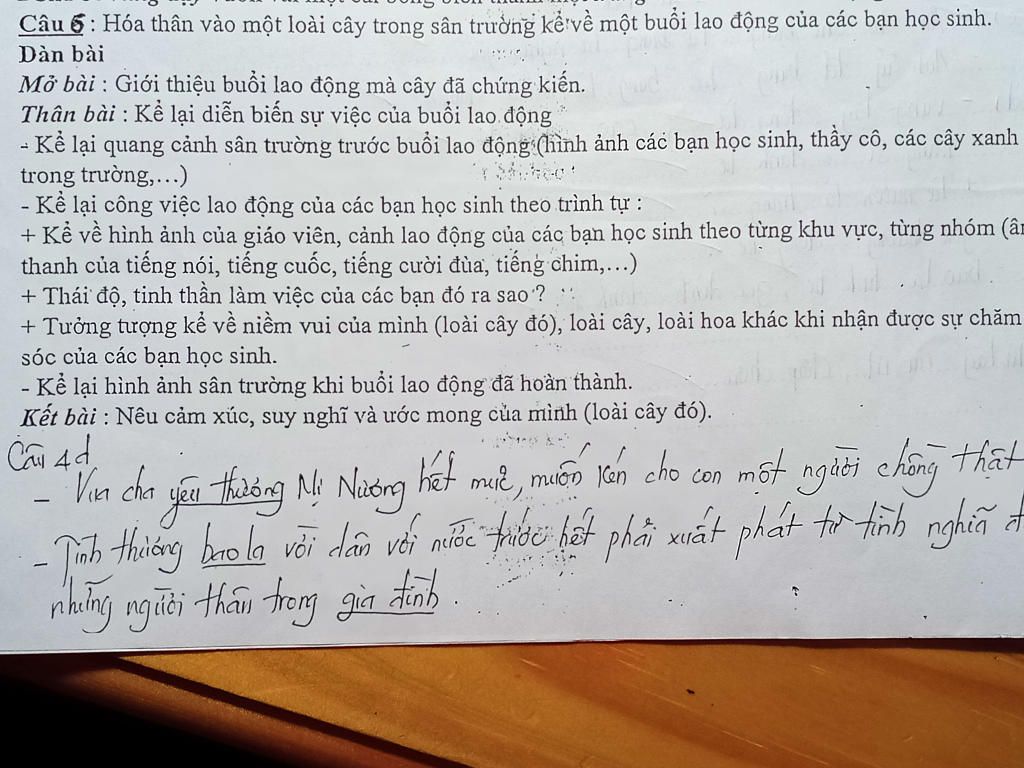 Câu 6 : Hóa thân vào một loài cây trong sân trường kể về một buổi lao động của các bạn học sinh.
Dàn bài
Mở bài : Giới thiệu buổi lao động mà cây đã chứng kiến.
Thân bài : Kể lại diễn biến sự việc của buổi lao động
- Kể lại quang cảnh sân trường trước buổi lao động (hình ảnh các bạn học sinh, thầy cô, các cây xanh
trong trường,…)
- Kể lại công việc lao động của các bạn học sinh theo trình tự :
+ Kể về hình ảnh của giáo viên, cảnh lao động của các bạn học sinh theo từng khu vực, từng nhóm (âm
thanh của tiếng nói, tiếng cuốc, tiếng cười đùa, tiếng chim,…)
+ Thái độ, tinh thần làm việc của các bạn đó ra sao ?
+ Tưởng tượng kể về niềm vui của mình (loài cây đó), loài cây, loài hoa khác khi nhận được sự chăm
sóc của các bạn học sinh.
- Kể lại hình ảnh sân trường khi buổi lao động đã hoàn thành.
Kết bài : Nêu cảm xúc, suy nghĩ và ước mong của mình (loài cây đó).
Câu 4d
- Vua cha yêu thương Mị Nương hết mực, muốn kén cho con một người chồng thật
- Tình thương bao la với dân với nước trước hết phải xuất phát từ tình nghĩa
những người thân trong gia đình.